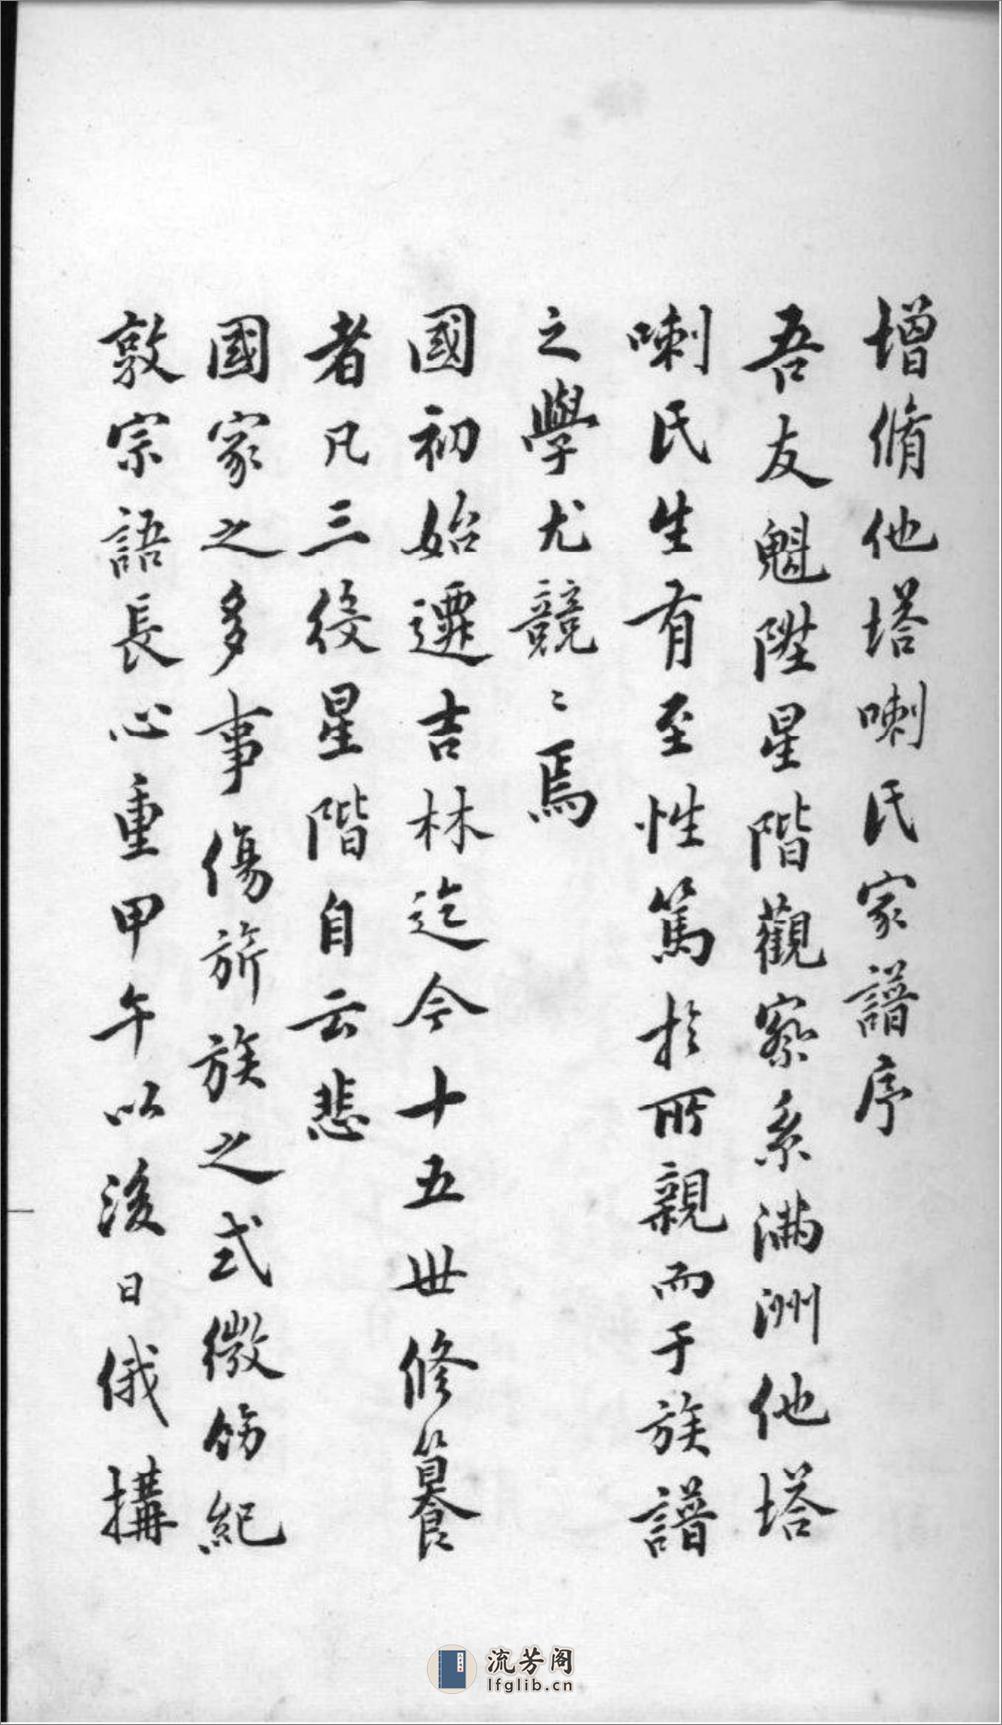 增脩他塔喇氏家譜序
吾友魁陞星階觀察系滿洲他塔
喇氏生有至性篤於所親而于族譜
之學尤競〻焉
國初始遷吉林迄今十五世修纂
者凡三役星階自云悲
國家之多事傷旂族之式微飭紀
敦宗語長心重甲午以後日俄搆
流芳阁
lfglib.cn